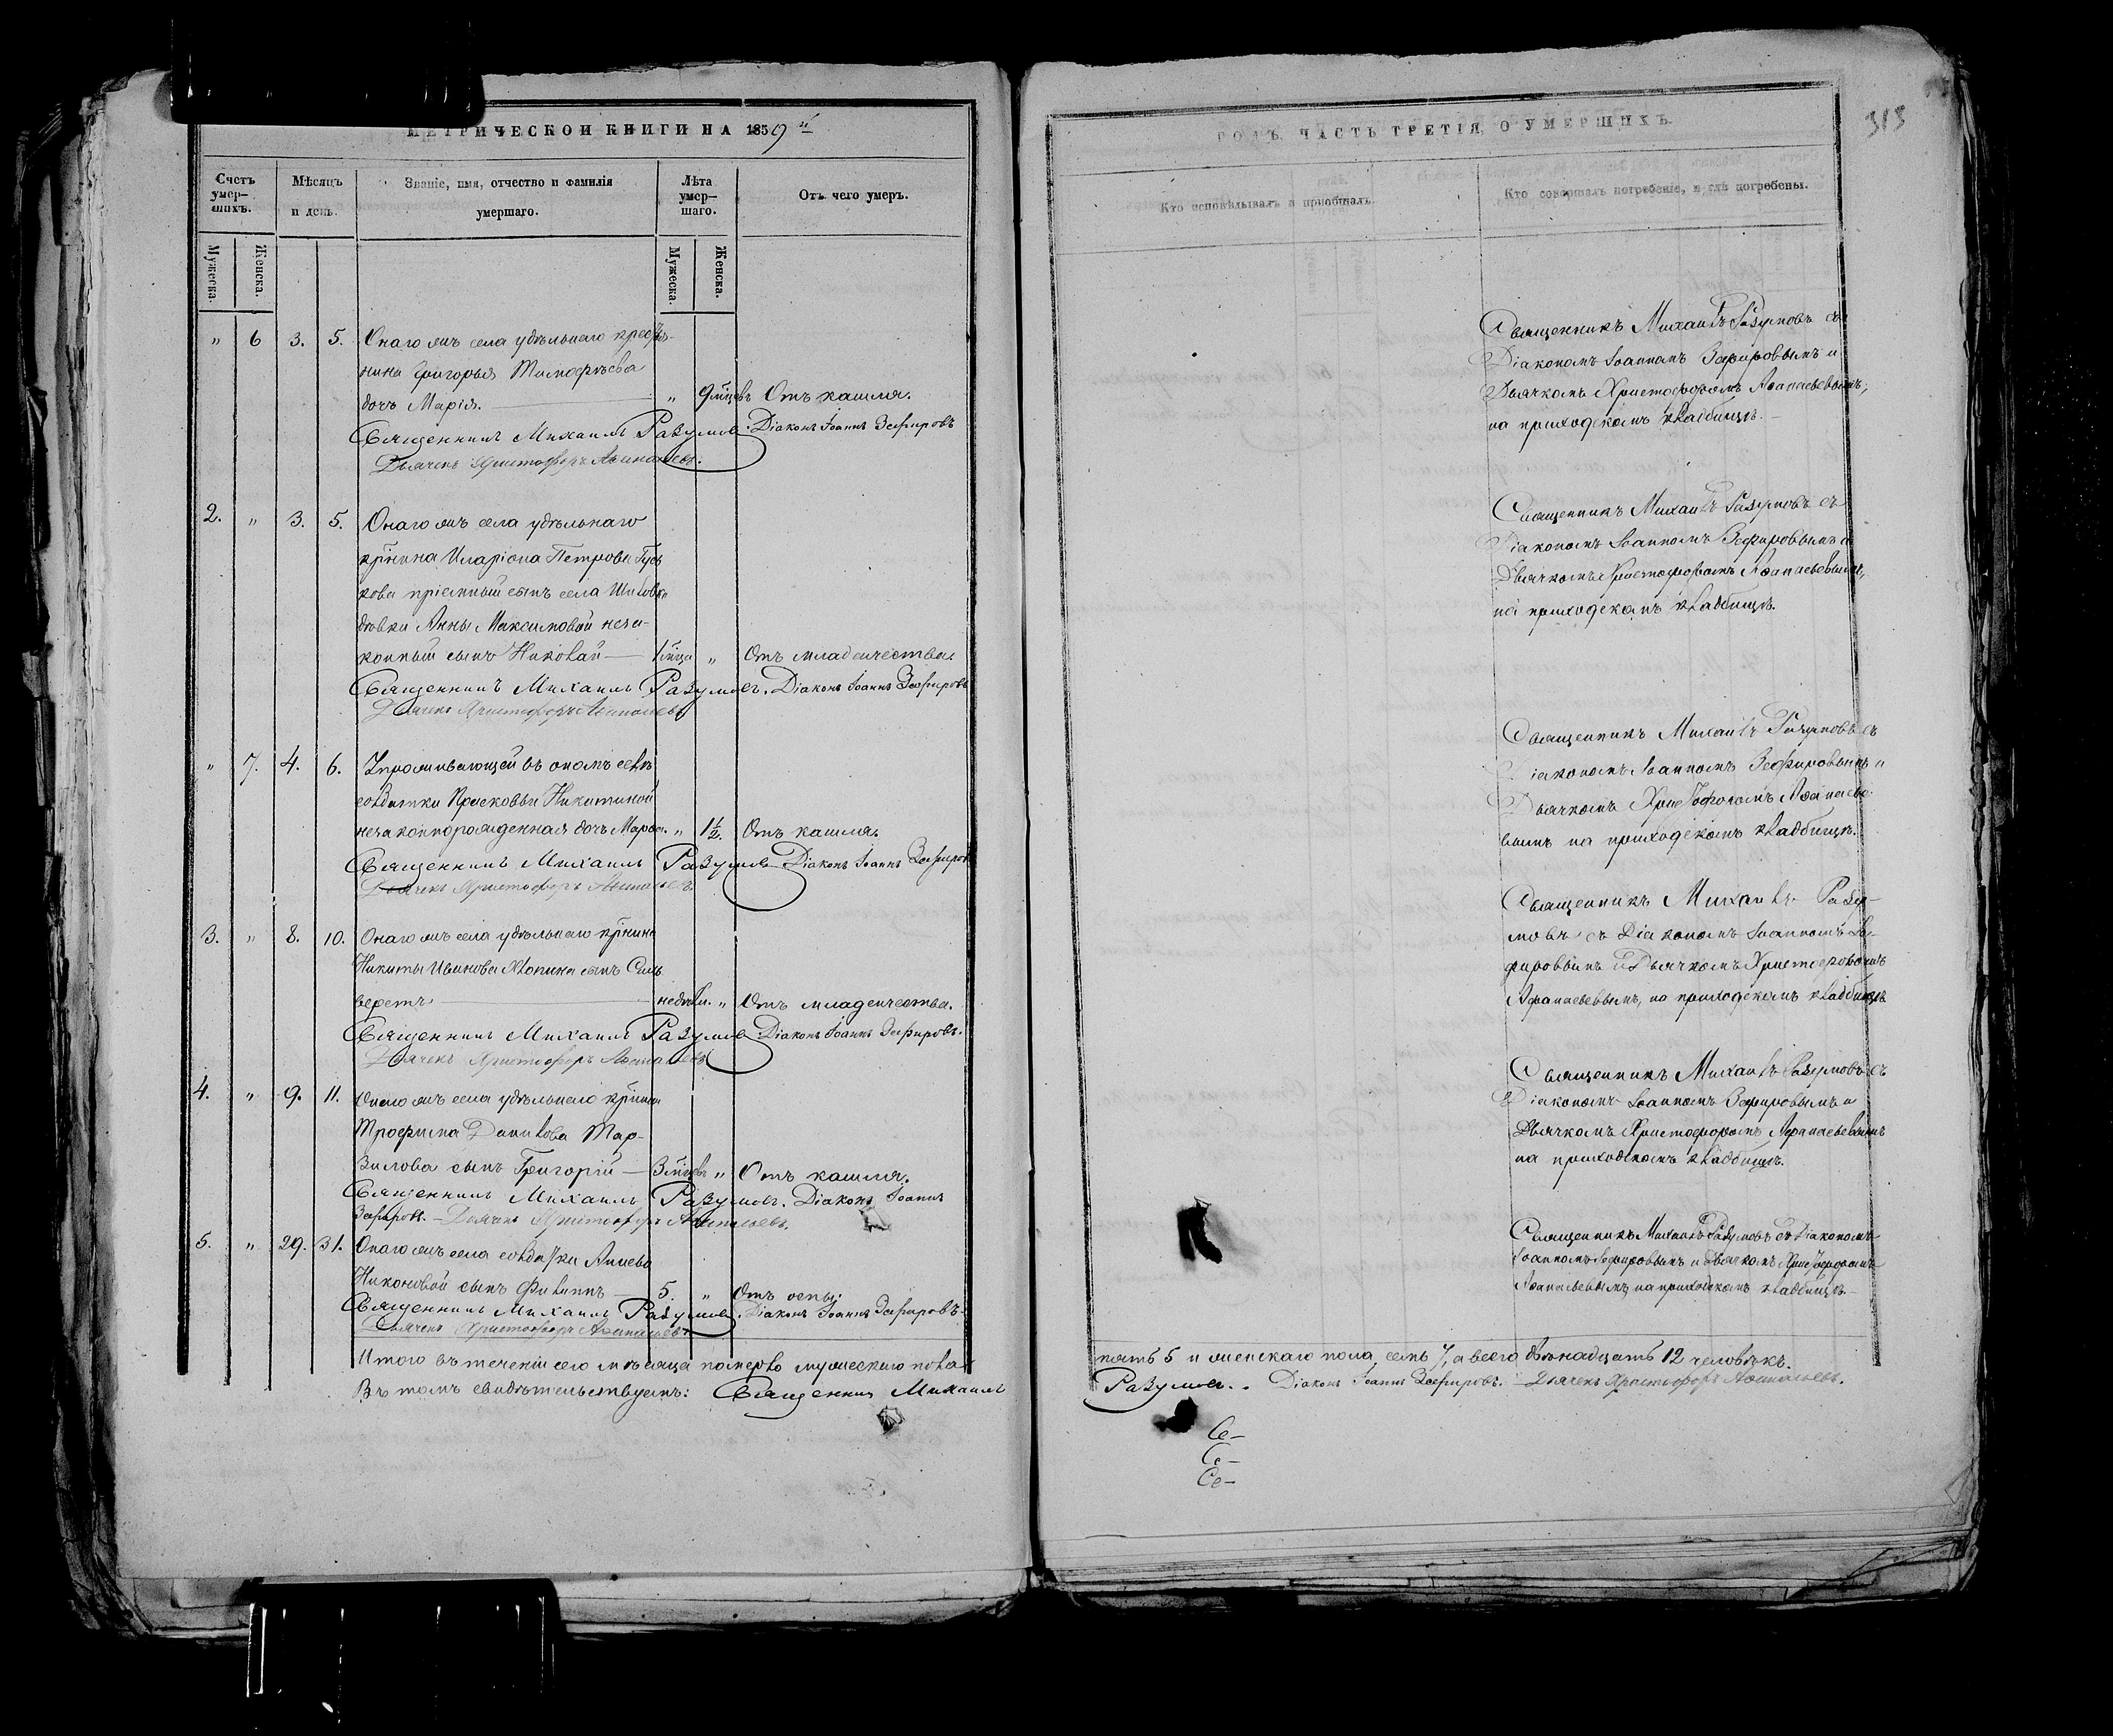 МЕТРИЧЕСКОЙ КНИГИ НА 1859 й
Счетъ умер-шихъ.
Мѣсяцъ и день.
Званіе, имя, отчество и фамилія умершаго.
Лѣта умер-шаго.
Отъ чего умеръ.
Мужеска.
Женска.
Мужеска.
Женска.
„ 6 3. 5. Онаго жъ села удѣльнаго кресть-
нина Григорья Тимофѣева
дочь Марія. „ 9 мцовъ Отъ кашля.
Священникъ Михаилъ Разумовъ. Діаконъ Іоаннъ Зефировъ
Дьячекъ Христофоръ Аѳанасьевъ.
2. „ 3. 5. Онаго жъ села удѣльнаго
крнина Иларіона Петрова Гусь
кова пріемный сынъ села
дѣвки Анны Максимовой неза-
конный сынъ Николай — 1 мца „ Отъ младенчества
Священникъ Михаилъ Разумовъ. Діаконъ Іоаннъ Зефировъ
Дьячекъ Христофоръ Аѳанасьевъ
„ 7. 4. 6. Упроживающей въ ономъ селѣ
солдатки Прасковьи Никитиной
незаконнорожденная дочь Марѳа. „ 1½. Отъ кашля.
Священникъ Михаилъ Разумовъ Діаконъ Іоаннъ Зефировъ
Дьячекъ Христофоръ Аѳанасьевъ
3. „ 8. 10. Онаго жъ села удѣльнаго крнина
Никиты Иванова сынъ Сель
верстъ — недѣли. „ Отъ младенчества.
Священникъ Михаилъ Разумовъ Діаконъ Іоаннъ Зефировъ.
Дьячекъ Христофоръ Аѳанасьевъ
4. „ 9. 11. Онаго жъ села удѣльнаго крнина
Трофима Данилова Тар-
зилова сынъ Григорій — 3 мцовъ „ Отъ кашля.
Священникъ Михаилъ Разумовъ. Діаконъ Іоаннъ
Зефировъ. — Дьячекъ Христофоръ Аѳанасьевъ.
5. „ 29. 31. Онаго жъ села солдатки
Никоновой сынъ Филиппъ — 5. „ Отъ оспы.
Священникъ Михаилъ Разумовъ. Діаконъ Іоаннъ Зефировъ.
Дьячекъ Христофоръ Аѳанасьевъ
Итого въ теченіи сего мѣсяца померло мужескаго пола
Въ томъ свидѣтельствуемъ: Священникъ Михаилъ
ГОДЪ, ЧАСТЬ ТРЕТІЯ, О УМЕРШИХЪ.
313
Кто исповѣдывалъ и пріобщалъ.
Кто совершалъ погребеніе, и гдѣ погребены.
Священникъ Михаилъ Разумовъ съ
Діакономъ Іоанномъ Зефировымъ и
Дьячкомъ Христофоромъ Аѳанасьевымъ,
на приходскомъ кладбищѣ.
Священникъ Михаилъ Разумовъ съ
Діакономъ Іоанномъ Зефировымъ и
Дьячкомъ Христофоромъ Аѳанасьевымъ,
на приходскомъ кладбищѣ.
Священникъ Михаилъ Разумовъ съ
Діакономъ Іоанномъ Зефировымъ и
Дьячкомъ Христофоромъ Аѳанасье-
вымъ на приходскомъ кладбищѣ.
Священникъ Михаилъ Разу-
мовъ съ Діакономъ Іоанномъ Зе-
фировымъ и Дьячкомъ Христофоромъ
Афанасьевымъ, на приходскомъ кладбищѣ
Священникъ Михаилъ Разумовъ съ
Діакономъ Іоанномъ Зефировымъ и
Дьячкомъ Христофоромъ Афанасьевымъ
на приходскомъ кладбищѣ.
Священникъ Михаилъ Разумовъ съ Діакономъ
Іоанномъ Зефировымъ и Дьячкомъ Христофоромъ
Аѳанасьевымъ на приходскомъ кладбищѣ.
пять 5 и женскаго пола семь 7, а всего двѣнадцать 12 человѣкъ.
Разумовъ. Діаконъ Іоаннъ Зефировъ. — Дьячекъ Христофоръ Аѳанасьевъ.
Се-
Се-
Се-